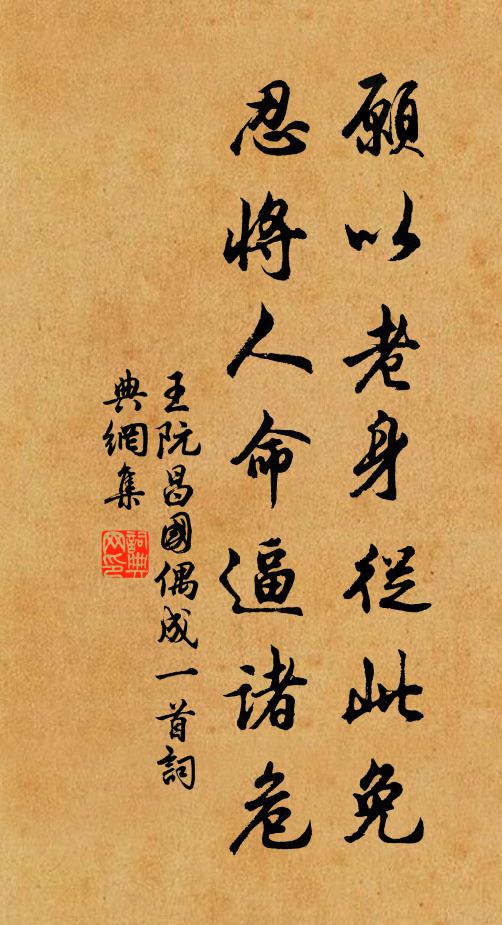 願以老身從此免
忍將人命逼諸危
王阮昌國偶成一首詞
典網集
詞典网印